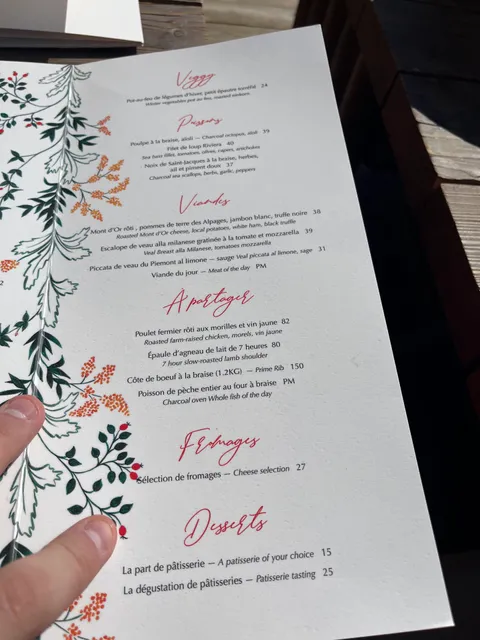 Veggy
Pot-au-feu de légumes d'hiver, petit épeautre torréfié 24
Winter vegetables pot-au-feu, roasted einkorn
Poissons
Poulpe à la braise, aïoli — Charcoal octopus, aïoli 39
Filet de loup Riviera 40
Sea bass fillet, tomatoes, olives, capers, artichokes
Noix de Saint-Jacques à la braise, herbes,
ail et piment doux 37
Charcoal sea scallops, herbs, garlic, peppers
Viandes
Mont d'Or rôti, pommes de terre des Alpages, jambon blanc, truffe noire 38
Roasted Mont d'Or cheese, local potatoes, white ham, black truffle
Escalope de veau alla milanese gratinée à la tomate et mozzarella 39
Veal Breast alla Milanese, tomatoes mozzarella
Piccata de veau du Piemont al limone — sauge Veal piccata al limone, sage 31
Viande du jour — Meat of the day PM
A partager
Poulet fermier rôti aux morilles et vin jaune 82
Roasted farm-raised chicken, morels, vin jaune
Épaule d'agneau de lait de 7 heures 80
7 hour slow-roasted lamb shoulder
Côte de boeuf à la braise (1.2KG) — Prime Rib 150
Poisson de pèche entier au four à braise PM
Charcoal oven Whole fish of the day
Fromages
Sélection de fromages — Cheese selection 27
Desserts
La part de pâtisserie — A patisserie of your choice 15
La dégustation de pâtisseries — Patisserie tasting 25